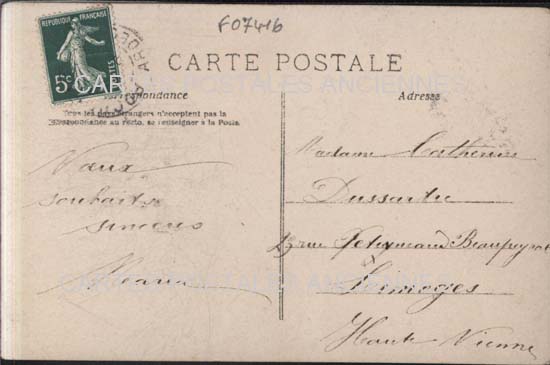 F07416
RÉPUBLIQUE FRANÇAISE
5c
POSTES
CARTE POSTALE
CARTES POSTALES ANCIENNES
Correspondance
Tous les pays étrangers n'acceptent pas la
correspondance au recto, se renseigner à la Poste.
Adresse
Vœux
souhaits
sincères
Madame Catherine
Dussartre
rue Beaupeyrat
Limoges
Haute Vienne